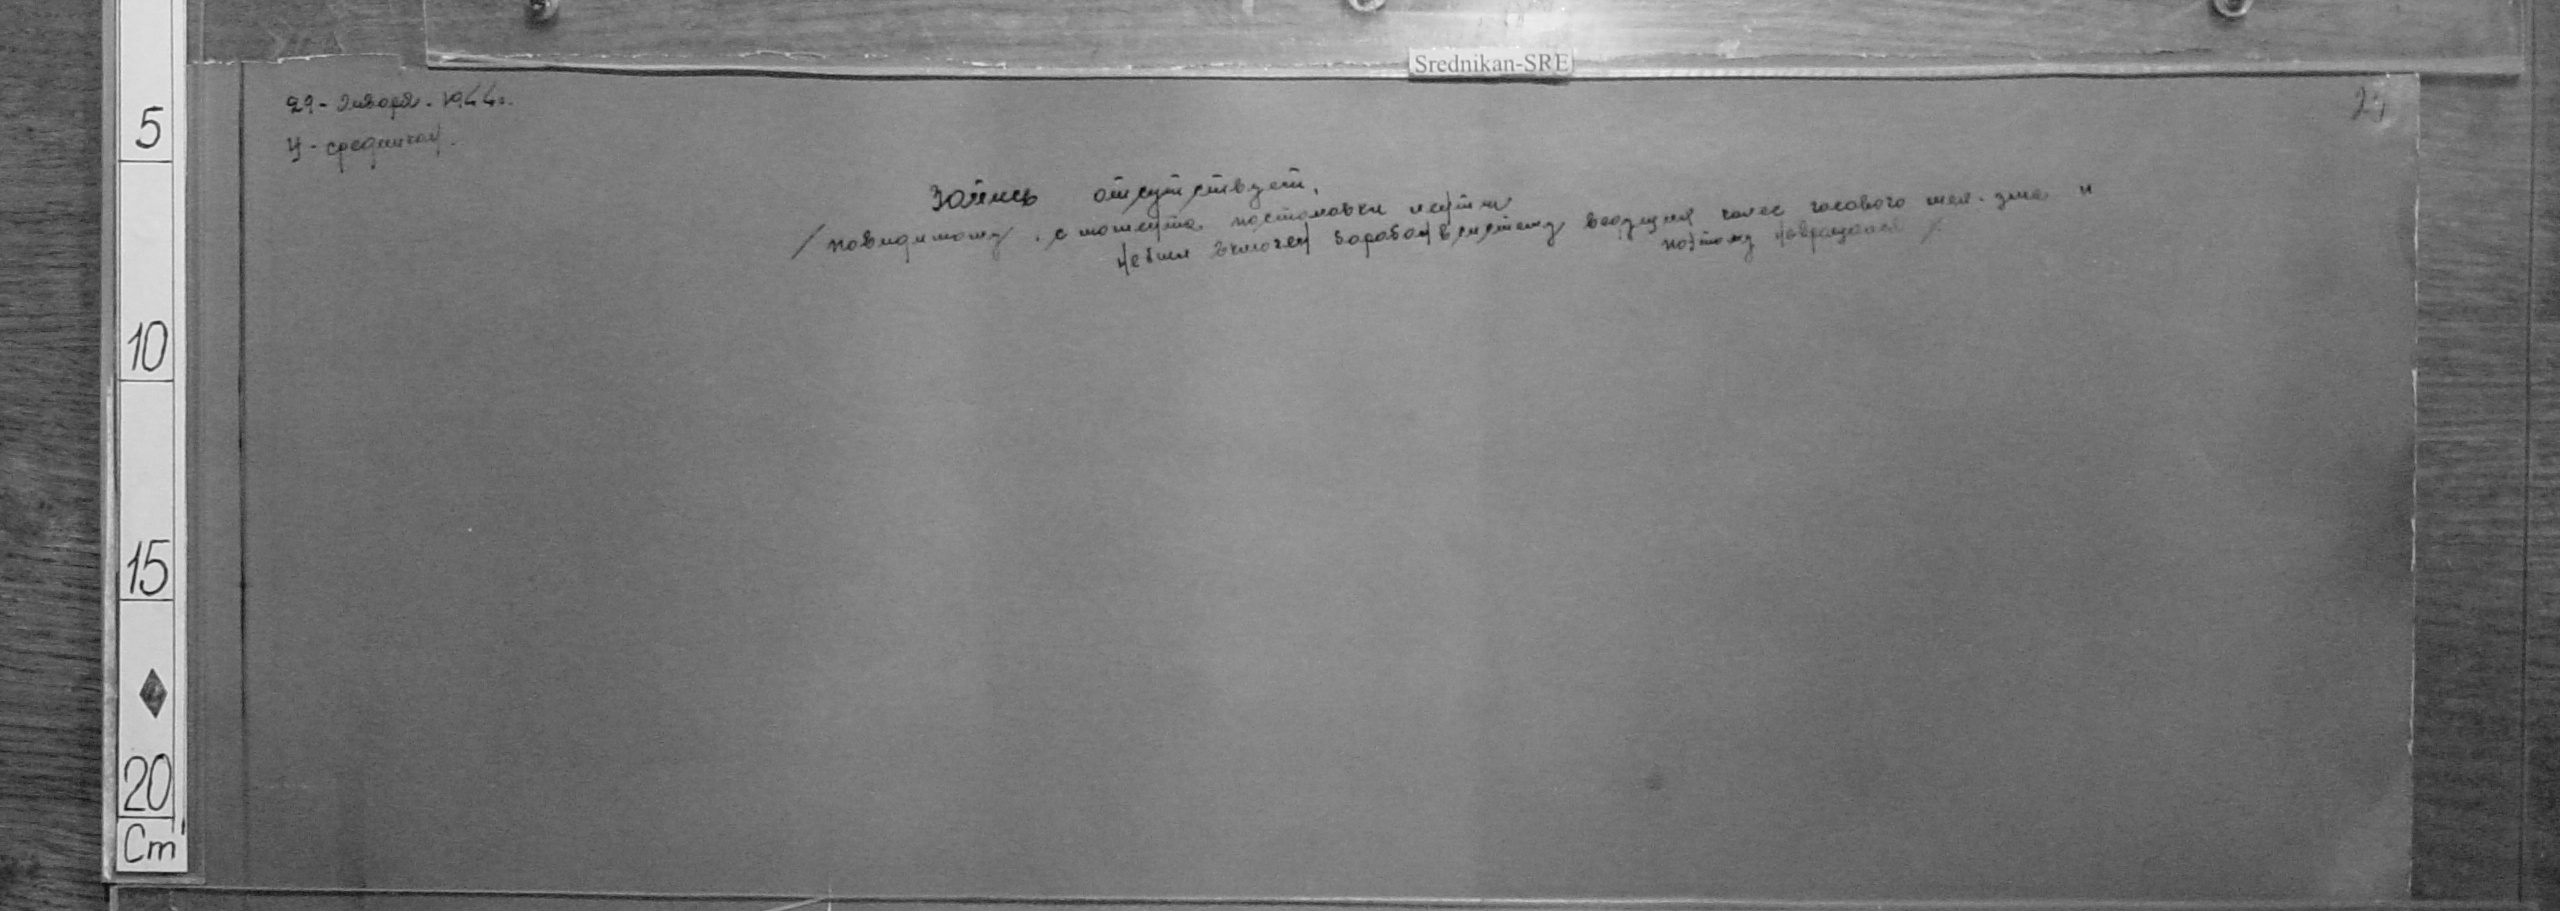 Srednikan-SRE
29 - Января. 1944г.
У - Среднікан.
24
Запись отсутствует.
/ повидимому, с момента постановки ленты
не был включен барабан в систему ведущих колес часового мех-зма и
поэтому невращался /
5
10
15
20
Cm